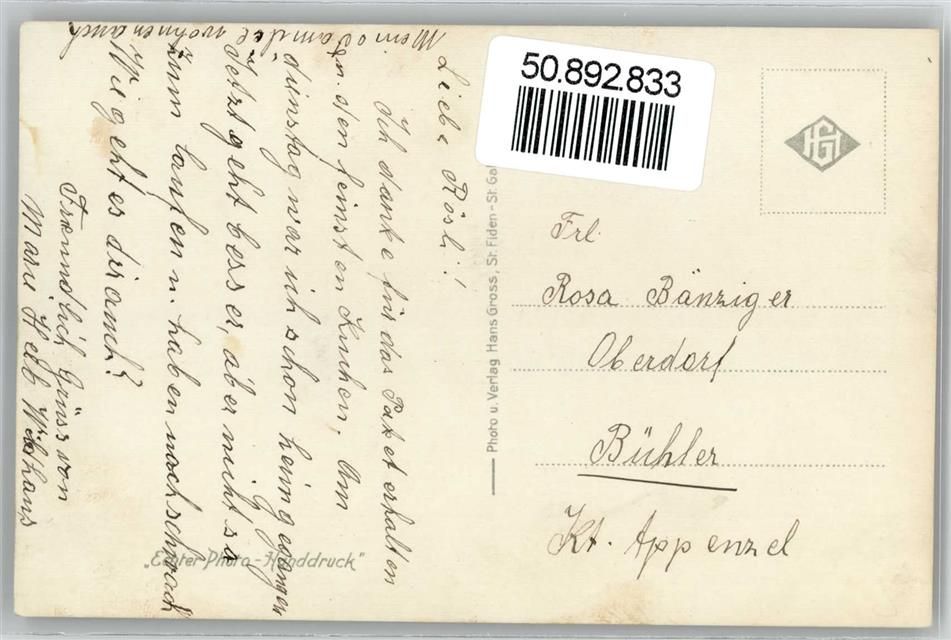 50.892.833
HG
Frl.
Rosa Bänziger
Oberdorf
Bühler
Kt. Appenzel
Photo u. Verlag Hans Gross, St. Fiden - St. Ga
„Echter Photo-Handdruck"
Liebe Rösli!
Ich danke für das Paket erhalten
u. den feinsten Kuchen. Am
dienstag war ich schon heimgegangen
Jetzt geht besser, aber nicht so
zum laufen u. haben noch schwach
Wie geht es dir auch?
Freundlich Grüss von
Marie Heeb
wohnen auch